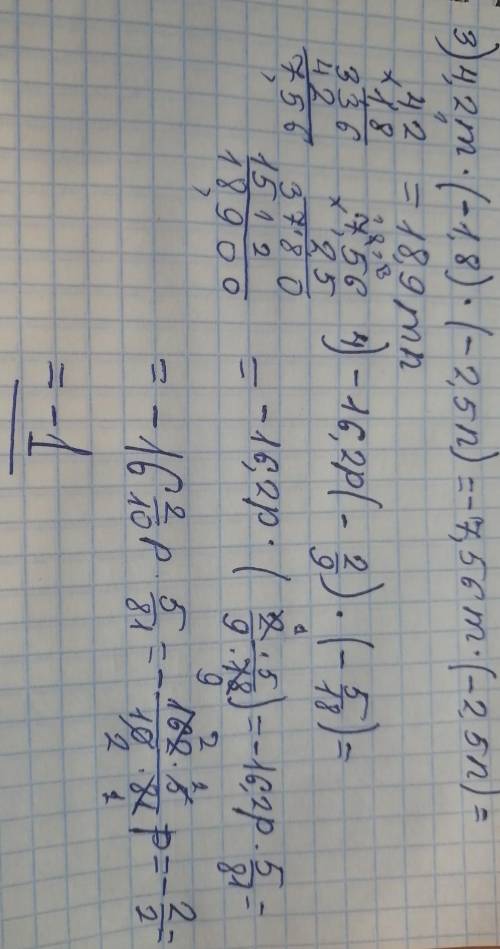 3) 4,2m · (-1,8) · (-2,5n) = -7,56m · (-2,5n) =
= 18,9mn
42
× 18
336
42
7,56
7,56
× 2,5
3780
1512
18,900
4) -16,2p(-2/9) · (-5/18) =
= -16,2p · (2·5/9·18) = -16,2p · 5/81 =
= -16 2/10 p · 5/81 = -162·5/10·81 p = -2/2 =
= -1